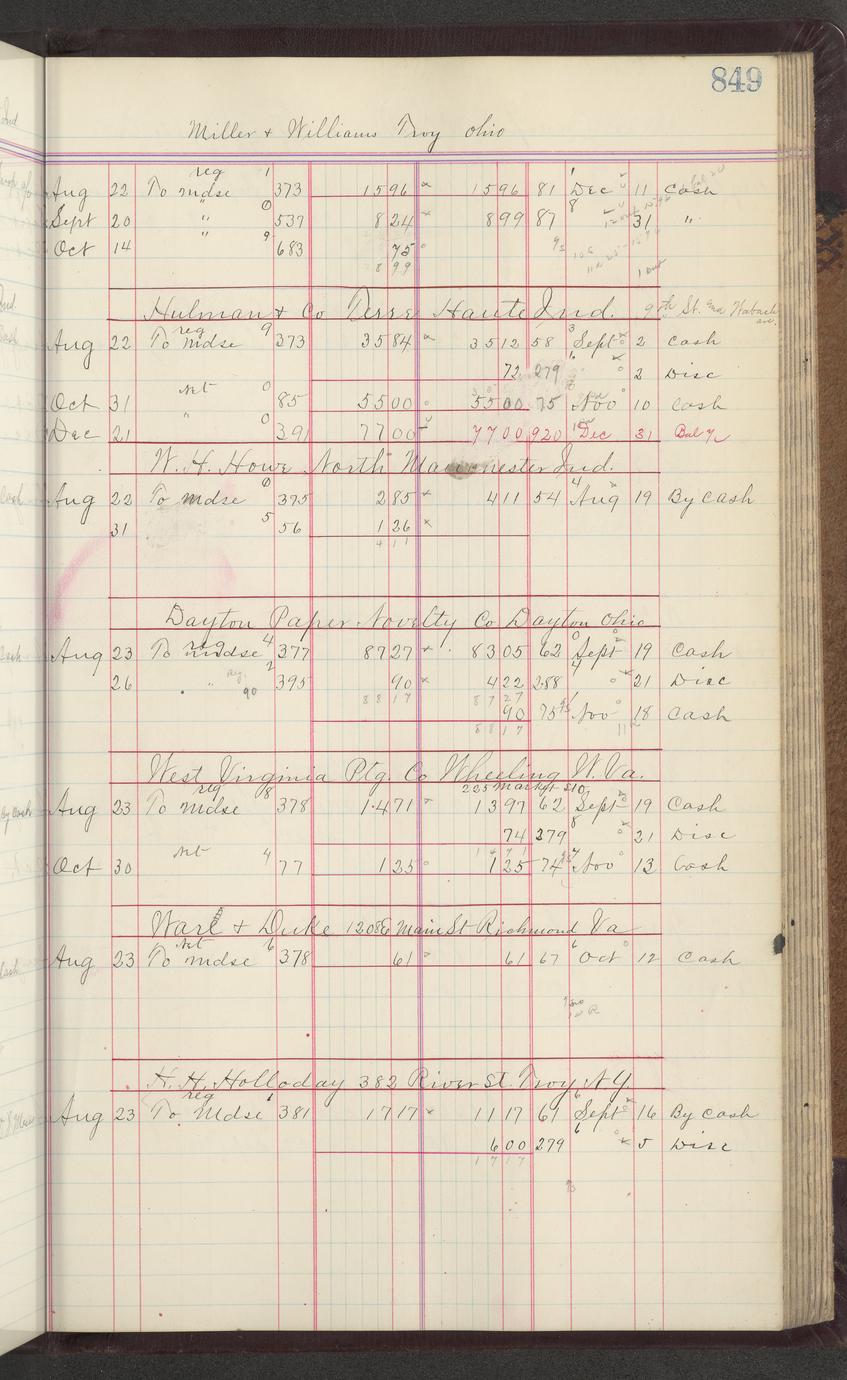 849
Miller & Williams Troy Ohio
reg 1
Aug 22 To mdse 373 1596 1596 81 Dec 11 Cash
Sept 20 " 0 537 824 899 87 8 31 "
Oct 14 " 9 683 75
8 99
Hulman & Co Terre Haute Ind. 9th St. and Wabash ave.
reg 9
Aug 22 To mdse 373 3584 3512 58 3 Sept 2 Cash
72 279 6 2 Disc
Net 0
Oct 31 85 5500 5500 75 Nov 10 Cash
Dec 21 " 0 391 7700 7700 920 Dec 31 Bal
W. H. Howe North Manchester Ind.
Aug 22 To mdse 6 375 285 411 54 4 Aug 19 By Cash
31 5 56 126
411
Dayton Paper Novelty Co Dayton Ohio
Aug 23 To mdse 4 377 8727 8305 62 0 Sept 19 Cash
26 " reg. 90 2 395 90 422 288 4 21 Disc
8817 8727
90 75 Nov 18 Cash
8817
West Virginia Ptg. Co Wheeling W. Va.
225 Market St
reg 8
Aug 23 To mdse 378 1471 1397 62 Sept 19 Cash
74 279 8 21 Disc
1471
Net 4
Oct 30 77 125 125 74 Nov 13 Cash
& Duke 1208 E Main St Richmond Va
Net 6
Aug 23 To mdse 378 61 61 67 6 Oct 12 Cash
H. H. Holloday 382 River St. Troy N.Y.
reg 1
Aug 23 To Mdse 381 1717 1117 61 6 Sept 16 By Cash
600 279 6 5 Disc
1717